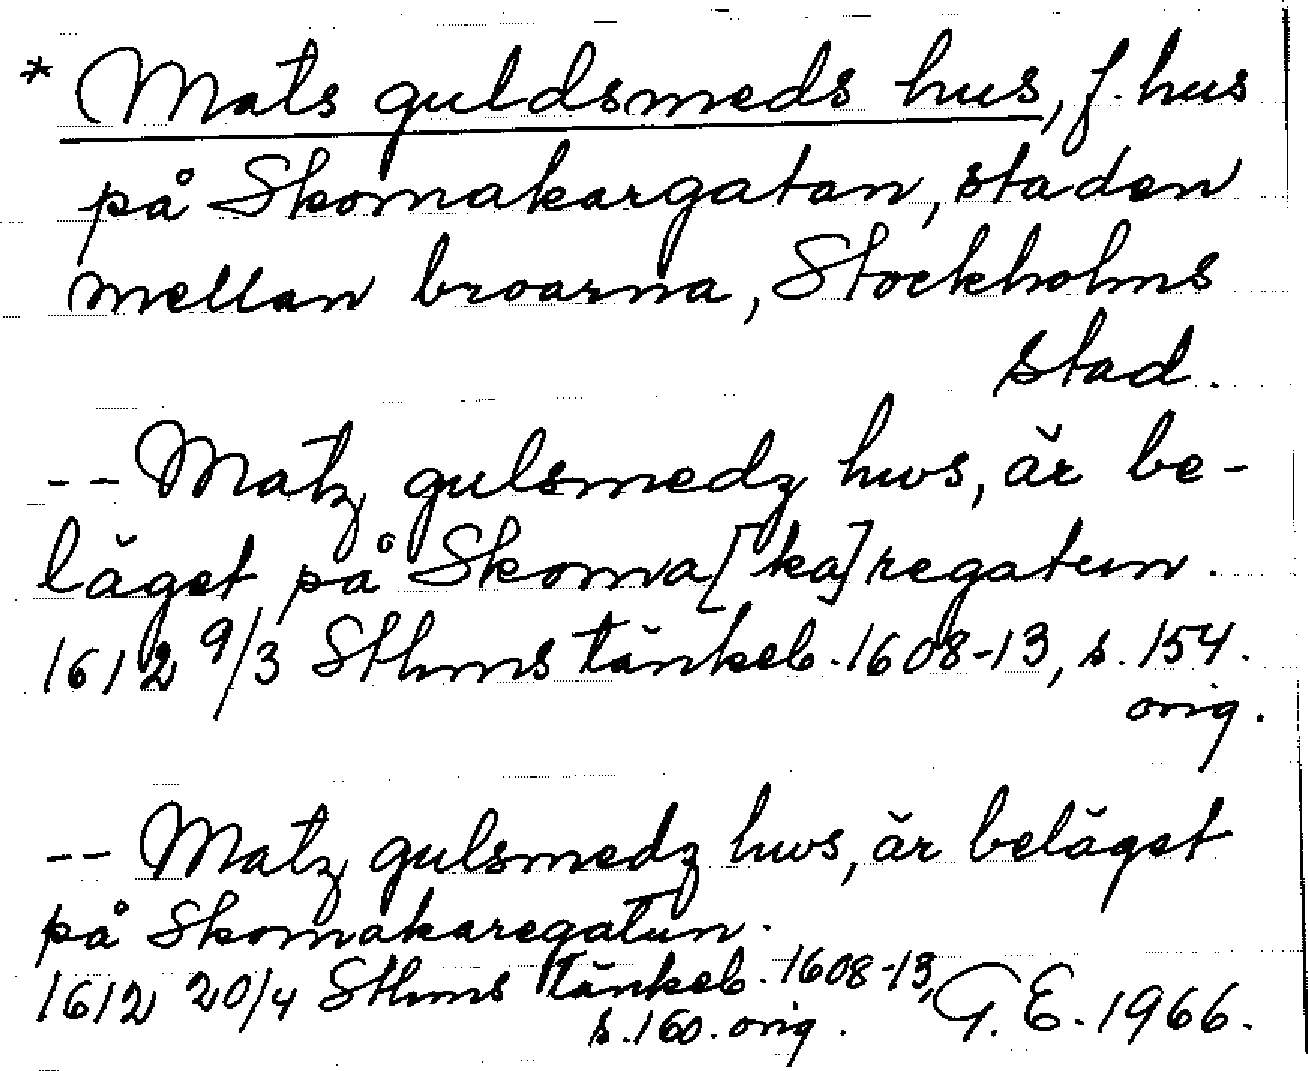 * Mats guldsmeds hus, f. hus
på Skomakargatan, staden
mellan broarna, Stockholms
stad.
-- Matz gulsmedz hws, är be-
läget på Skoma[ka]regatun.
1612 9/3 Sthms tänkeb. 1608-13, s. 154.
orig.
-- Matz gulsmedz hws, är beläget
på Skomakaregatun.
1612 20/4 Sthms tänkeb. 1608-13,
s. 160. orig. G. E. 1966.